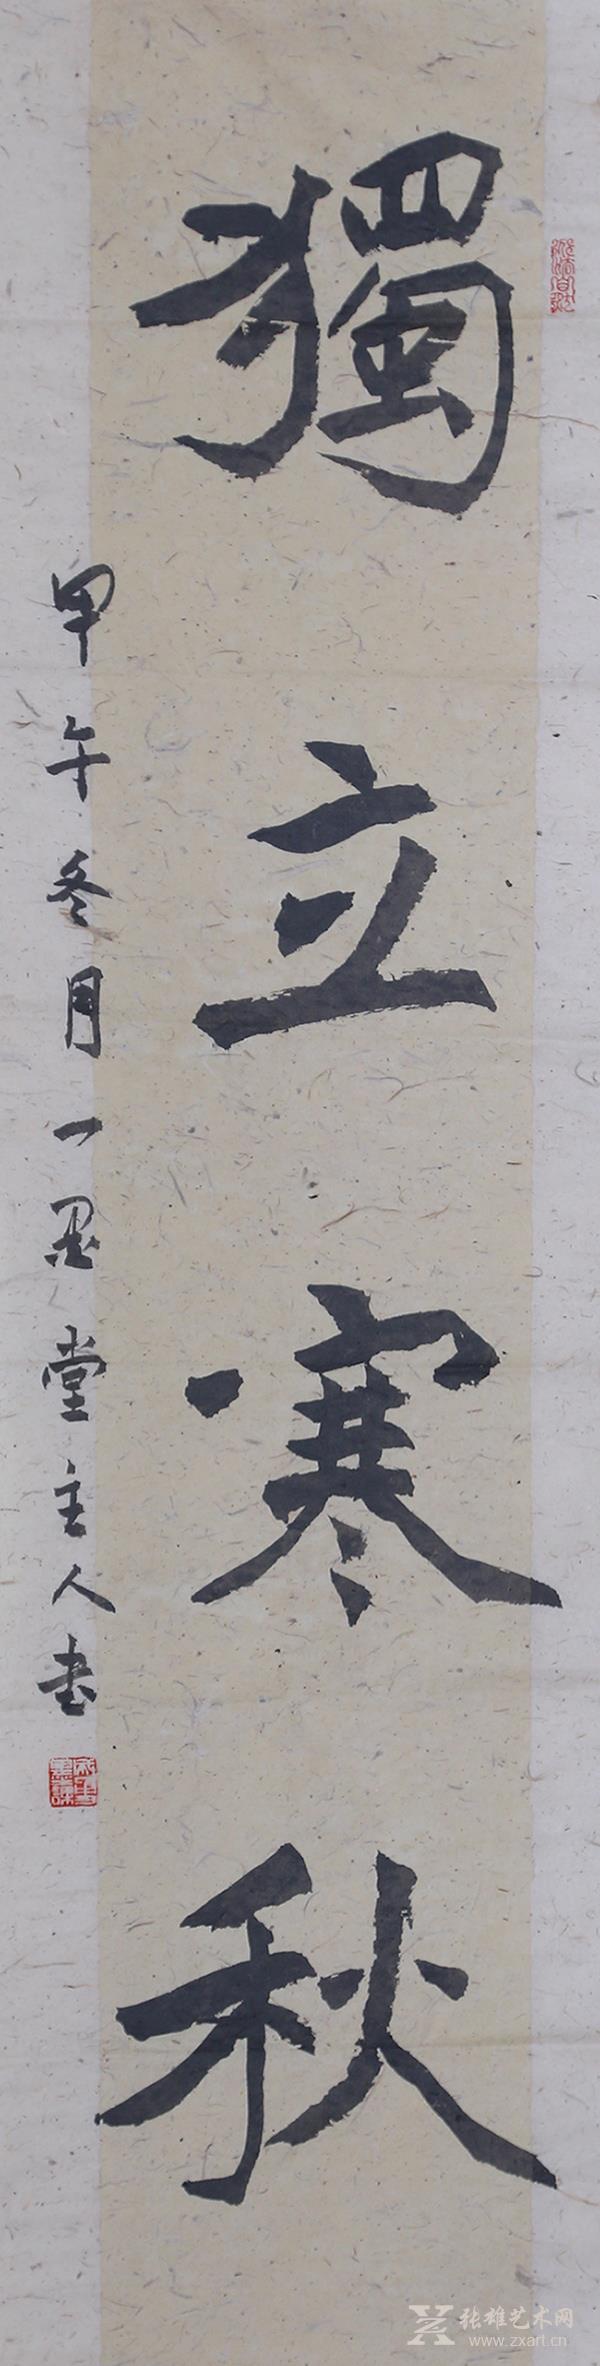 獨立寒秋
甲午冬月一墨堂主人书
张雄艺术网
www.zxart.cn